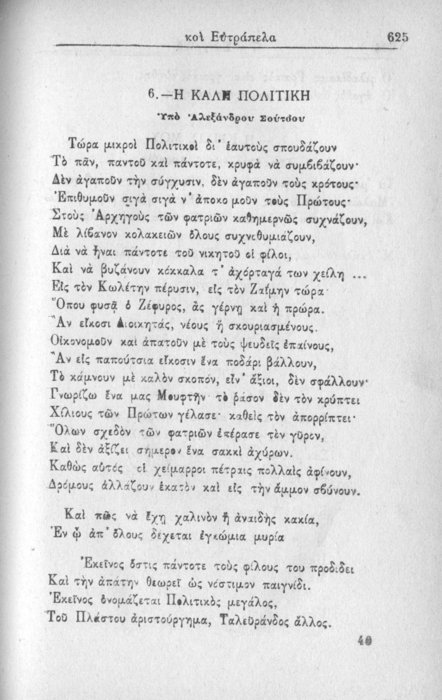 καὶ Εὐτράπελα 625
6.—Η ΚΑΛΗ ΠΟΛΙΤΙΚΗ
Ὑπὸ Ἀλεξάνδρου Σούτσου
Τώρα μικροὶ Πολιτικοὶ δι' ἑαυτοὺς σπουδάζουν
Τὸ πᾶν, παντοῦ καὶ πάντοτε, κρυφὰ νὰ συμβιβάζουν·
Δὲν ἀγαποῦν τὴν σύγχυσιν, δὲν ἀγαποῦν τοὺς κρότους·
Ἐπιθυμοῦν σιγὰ σιγὰ ν' ἀποκομοῦν τοὺς Πρώτους·
Στοὺς Ἀρχηγοὺς τῶν φατριῶν καθημερνῶς συχνάζουν,
Μὲ λίβανον κολακειῶν ὅλους συχνοθυμιάζουν,
Διὰ νὰ ἦναι πάντοτε τοῦ νικητοῦ οἱ φίλοι,
Καὶ νὰ βυζάνουν κόκκαλα τ' ἀχόρταγά των χείλη ...
Εἰς τὸν Κωλέτην πέρυσιν, εἰς τὸν Ζαΐμην τώρα·
Ὅπου φυσᾷ ὁ Ζέφυρος, ἂς γέρνῃ καὶ ἡ πρώρα.
Ἂν εἴκοσι Διοικητάς, νέους ἢ σκουριασμένους.
Οἰκονομοῦν καὶ ἀπατοῦν μὲ τοὺς ψευδεῖς ἐπαίνους,
Ἂν εἰς παπούτσια εἴκοσιν ἕνα ποδάρι βάλλουν,
Τὸ κάμνουν μὲ καλὸν σκοπόν, εἶν' ἄξιοι, δὲν σφάλλουν·
Γνωρίζω ἕνα μας Μουφτῆν τὸ ῥάσον δὲν τὸν κρύπτει
Χίλιους τῶν Πρώτων γέλασε· καθεὶς τὸν ἀπορρίπτει·
Ὅλων σχεδὸν τῶν φατριῶν ἐπέρασε τὸν γῦρον,
Καὶ δὲν ἀξίζει σήμερον ἕνα σακκὶ ἀχύρων.
Καθὼς αὐτός οἱ χείμαρροι πέτραις πολλαῖς ἀφίνουν,
Δρόμους ἀλλάζουν ἑκατὸν καὶ εἰς τὴν ἄμμον σβύνουν.
Καὶ πῶς νὰ ἔχῃ χαλινὸν ἡ ἀναιδὴς κακία,
Ἐν ᾧ ἀπ' ὅλους δέχεται ἐγκώμια μυρία
Ἐκεῖνος ὅστις πάντοτε τοὺς φίλους του προδίδει
Καὶ τὴν ἀπάτην θεωρεῖ ὡς νόστιμον παιγνίδι.
Ἐκεῖνος ὀνομάζεται Πολιτικὸς μεγάλος,
Τοῦ Πλάστου ἀριστούργημα, Ταλεϋράνδος ἄλλος.
40